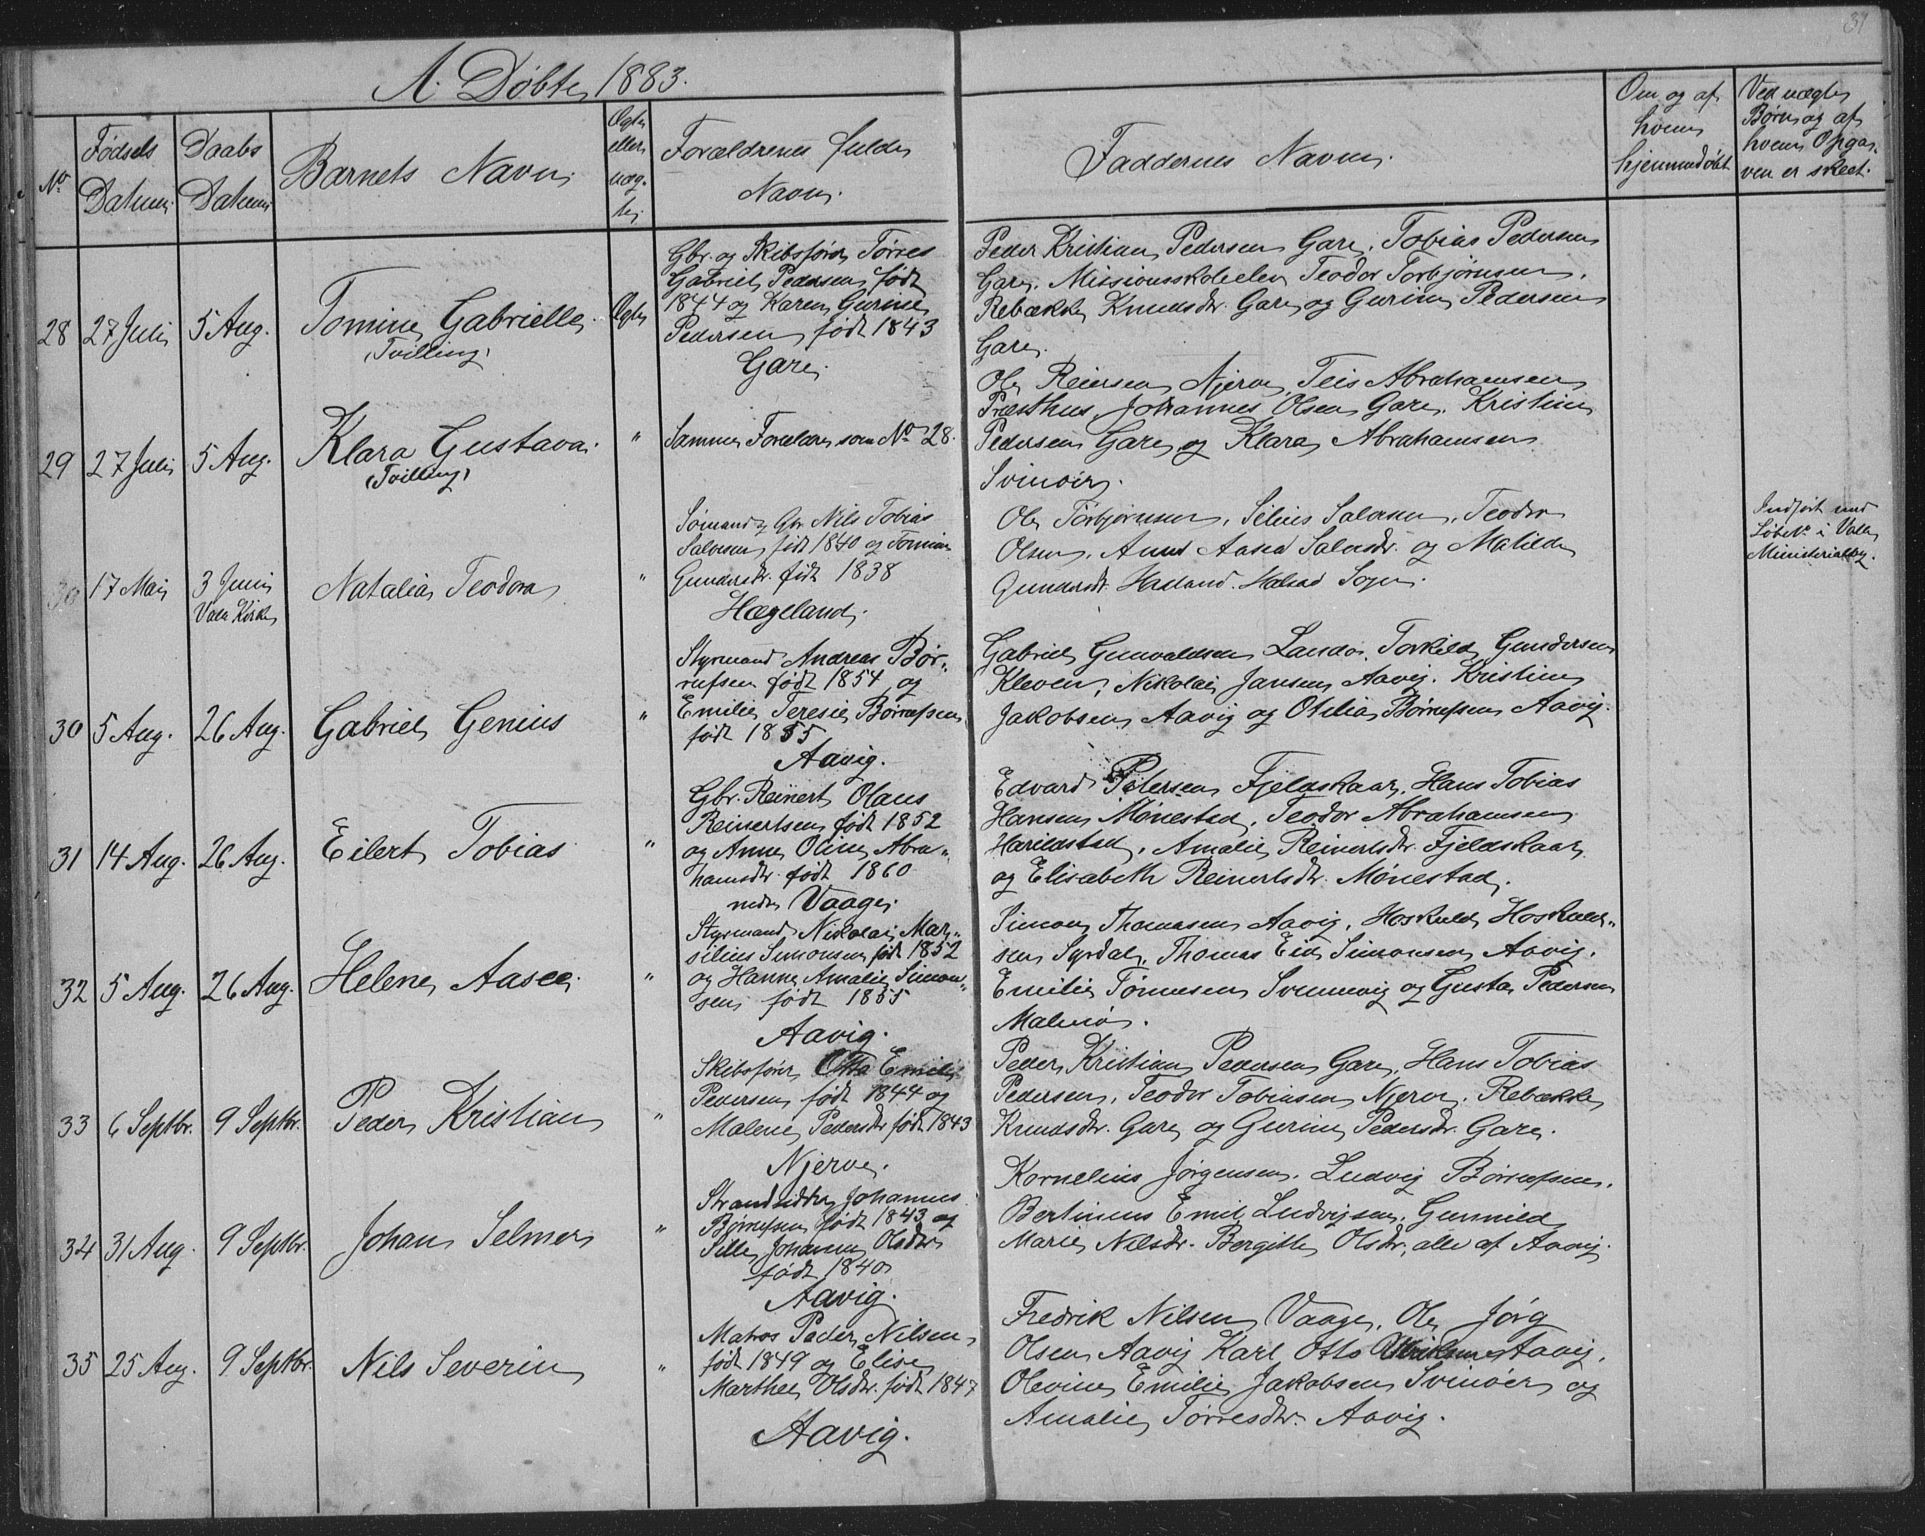 31
A. Døbte 1883.
No
Fødsels Datum.
Daabs Datum.
Barnets Navn.
Ægte eller uæg- te.
Forældrenes fulde Navn.
Faddernes Navn.
Om og af hvem hjemmedøbt
Ved uægte Børn og af hvem Opga- ven er skeet.
28 27 Juli 5 Aug. Tomine Gabrielle (Tvilling) Ægte
Gbr. og Skibsfører Tørres
Gabriel Pedersen født
1844 og Karen Gurine
Pedersen født 1843
Gare.
Peder Kristian Pedersen Gare, Tobias Pedersen
Gare, Missionsskoleelev Teodor Torbjørnsen,
Rebække Knudsdtr. Gare og Gurine Pedersen
Gare.
29 27 Juli 5 Aug. Klara Gustava. (Tvilling) "
Samme Forældre som No 28.
Ole Reiersen Njerve, Teis Abrahamsen
Præsthus, Johannes Olsen Gare, Kristine
Pedersen Gare og Klara Abrahamsen
Svinøer.
30 17 Mai 3 Juni Valle Kirke Natalia Teodora "
Sømand og Gbr. Nils Tobias
Salvesen født 1840 og Tomine
Gundersdtr. født 1838
Hægeland.
Ole Torbjørnsen, Selius Salvesen, Teodor
Olsen, Anne Aased Salvesdr. og Matilde
Gundersdr. Haaland. Halsaa Sogn.
Indført med
Løbe No i Valle
Ministerialbog.
30 5 Aug. 26 Aug. Gabriel Genius "
Styrmand Andreas Bør-
resen født 1854 og
Emilie Teresie Børresen
født 1855
Aavig.
Gabriel Gunvaldsen Landø, Torkild Gundersen
Kleven, Nikolai Jansen Aavig, Kristine
Jakobsen Aavig og Otilia Børresen Aavig.
31 14 Aug. 26 Aug. Eilert Tobias "
Gbr. Reinert Olaus
Reinertsen født 1852
og Anne Oline Abra-
hamsdtr. født 1860
nedre Vaage.
Edvard Petersen Fjeldskaar, Hans Tobias
Hansen Mønestad, Teodor Abrahamsen
Harildstad, Amalie Reinertsdtr. Fjeldskaar
og Elisabeth Reinertsdtr. Mønestad.
32 5 Aug. 26 Aug. Helene Aasee. "
Styrmand Nikolai Mar-
silius Simonsen født 1852
og Hanne Amalie Simon-
sen født 1855
Aavig.
Simon Thomassen Aavig, Hoskuld Hoskulds-
sen Syrdal, Thomas Eid Simonsen Aavig.
Emilie Tønnesen Svennevig og Gusta Pedersen
Malmø.
33 6 Septbr. 9 Septbr. Peder Kristian "
Skibsfører Otto Emil
Pedersen født 1844 og
Malene Pedersdtr født 1843
Njerve.
Peder Kristian Pedersen Gare, Hans Tobias
Pedersen, Teodor Tobiasen Njerve, Rebække
Knudsdtr. Gare og Gurine Pedersdtr. Gare.
34 31 Aug. 9 Septbr. Johan Selmer "
Strandsidder Johannes
Børresen født 1843 og
Sille Johanne Olsdtr
født 1840
Aavig.
Kornelius Jørgensen, Ludvig Børresen,
Bertineus Emil Ludvigsen, Gunnild
Marie Nilsdr. Bergitte Olsdr, alle af Aavig.
35 25 Aug. 9 Septbr. Nils Severin "
Matros Peder Nilsen
født 1849 og Elise
Marthea Olsdtr. født 1847
Aavig.
Fredrik Nilsen Vaage, Ole Jørg
Olsen Aavig Karl Otto Aavig,
Olevine Emilie Jakobsen Svinøer og
Amalie Tørresdtr. Aavig.